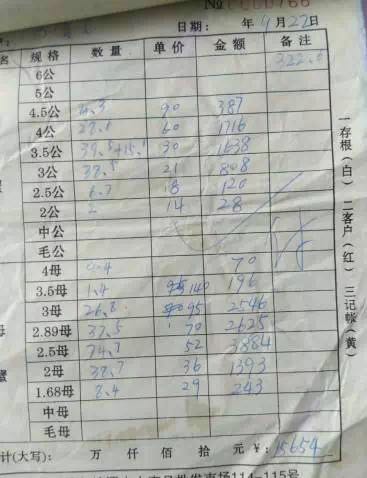 №0000766
日期： 年 9 月 22 日
名 规格 数量 单价 金额 备注
6公 322.
5公
4.5公 4.3 90 387
4公 28.6 60 1716
3.5公 30 1638
3公 38.5 21 808
2.5公 6.7 18 120
2公 2 14 28
中公
毛公
4母 70
3.5母 1.4 140 196
3母 26.8 95 2546
2.89母 37.5 70 2625
2.5母 74.7 52 3884
2母 38.7 36 1393
1.68母 8.4 29 243
中母
毛母
计(大写)： 万 仟 佰 拾 元 ¥：15654
批发市场114-115号
一存根（白） 二客户（红） 三记帐（黄）